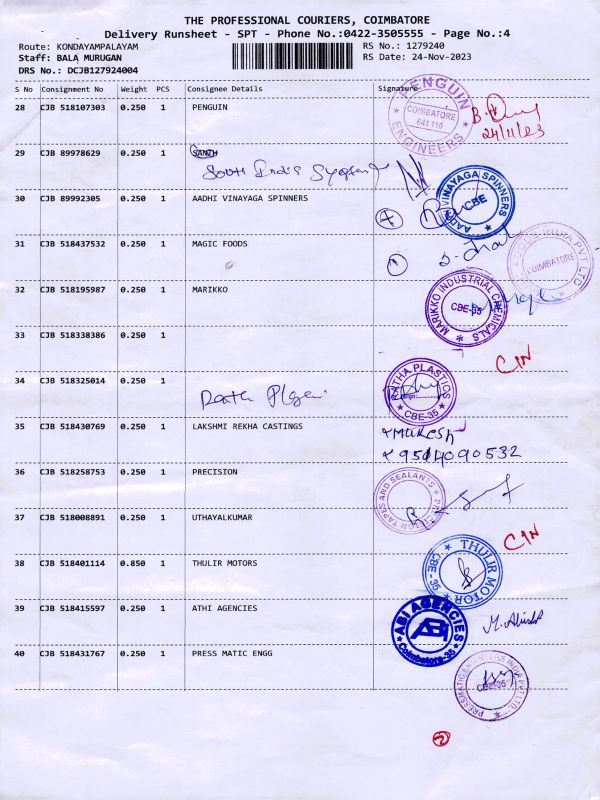 THE PROFESSIONAL COURIERS, COIMBATORE
Delivery Runsheet - SPT - Phone No.:0422-3505555 - Page No.:4
Route: KONDAYAMPALAYAM RS No.: 1279240
Staff: BALA MURUGAN RS Date: 24-Nov-2023
DRS No.: DCJB127924004
S No Consignment No Weight PCS Consignee Details Signature
28 CJB 518107303 0.250 1 PENGUIN
PENGUIN ENGINEERS COIMBATORE 641 110
24/11/23
29 CJB 89978629 0.250 1
South India
30 CJB 89992305 0.250 1 AADHI VINAYAGA SPINNERS
AADHI VINAYAGA SPINNERS CBE
31 CJB 518437532 0.250 1 MAGIC FOODS
COIMBATORE
32 CJB 518195987 0.250 1 MARIKKO
MARIKKO INDUSTRIAL CHEMICALS CBE-35
33 CJB 518338386 0.250 1
CIN
34 CJB 518325014 0.250 1
PLASTICS CBE-35
35 CJB 518430769 0.250 1 LAKSHMI REKHA CASTINGS
MUKESH
9504090532
36 CJB 518258753 0.250 1 PRECISION
PRECISION TAPES AND SEALANTS
37 CJB 518008891 0.250 1 UTHAYALKUMAR
CIN
38 CJB 518401114 0.850 1 THULIR MOTORS
THULIR MOTOR CBE - 35
39 CJB 518415597 0.250 1 ATHI AGENCIES
ABI AGENCIES ABI Coimbatore-35
40 CJB 518431767 0.250 1 PRESS MATIC ENGG
CBE-35
2